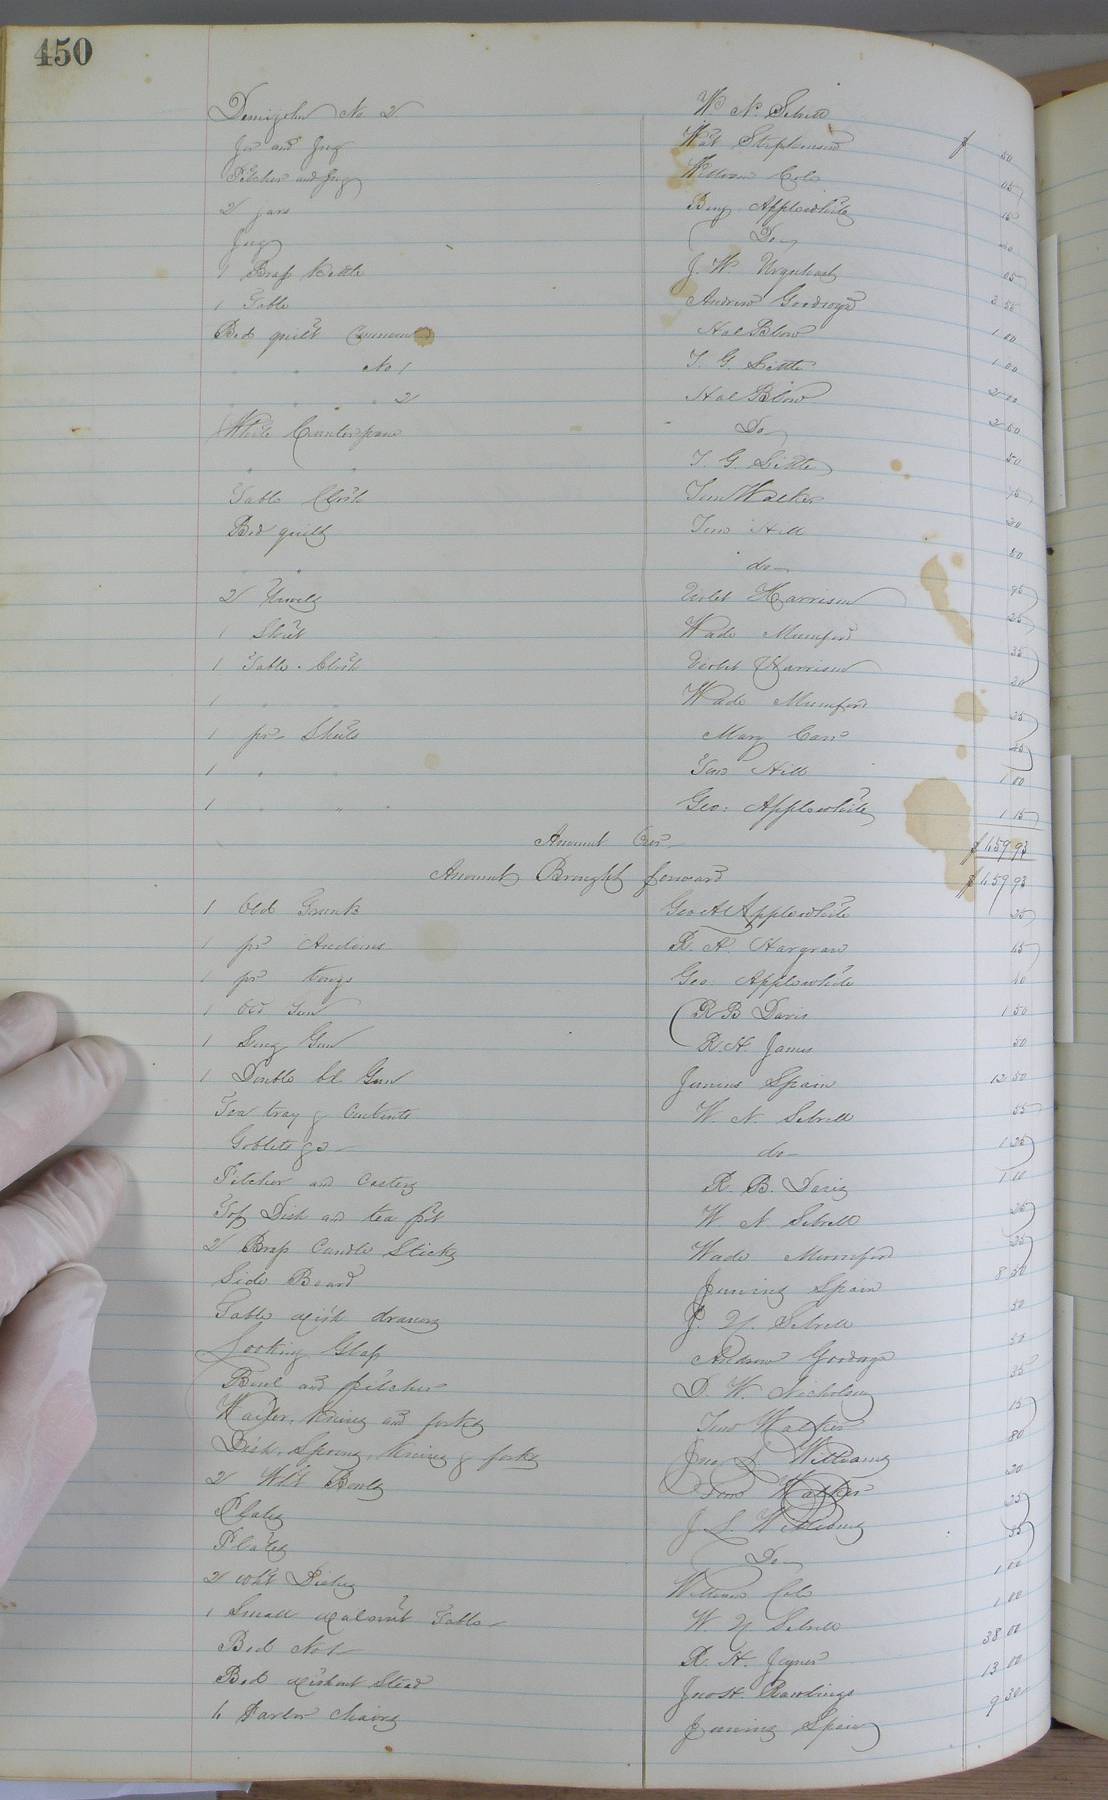 450
Demijohn No 2 W. N. Sebrell $ 50
Jar and Jug Wat Stephenson 05
Pitcher and Jug William Cole 15
2 jars Benj Applewhite
Jug Do 05
1 Brass Kettle J. W. Urquhart 3 55
1 Table Andrew Goodwyn 1 00
Bed quilt Common Hal Blow 1 00
" " No 1 T. G. Little 2 00
" " 2 Hal Blow 2 50
White Counterpane Do 50
" " T. G. Little 75
Table Cloth Tom Walker 20
Bed quilt Tom Hill 50
" " do 95
2 Towels Violet Harrison 25
1 Sheet Wade Mumford 35
1 Table Cloth Violet Harrison 20
1 " " Wade Mumford 25
1 pr Sheets Mary Carr
1 " " Tom Hill 1 00
1 " " " Geo: Applewhite 1 15
Amount Over $ 159 93
Amount Brought forward $ 159 93
1 Old Trunk Geo A Applewhite 25
1 pr Andirons R. A. Hargrave 15
1 pr tongs Geo. Applewhite 10
1 Old Gun R B Davis 1 50
1 Long Gun R. H. James 50
1 Double bl Gun Junius Spain 12 50
Tea tray & Contents W. N. Sebrell 55
Goblets &c do 1 25
Pitcher and Casters R. B. Davis 1 10
Top Dish and tea pot W N Sebrell 25
2 Brass Candle Sticks Wade Mumford 25
Side Board Junius Spain 8 50
Table with drawers J. N. Sebrell 50
Looking Glass Andrew Goodwyn 50
Bowl and pitcher D. W. Nicholson 35
Waiter, Knives and forks Tom Walker 15
Dish, Spoons, Knives & forks Jno L Williams 80
2 Wht Bowls Tom Walker 20
Plates J L Williams 25
Plates Do 55
2 wht Dishes William Cole 1 00
1 Small walnut Table W N Sebrell 1 00
Bed No 1 R. H. Joyner 38 00
Bed without Stead Jno H. Rawlings 13 00
6 Parlor Chairs Junius Spain 9 30